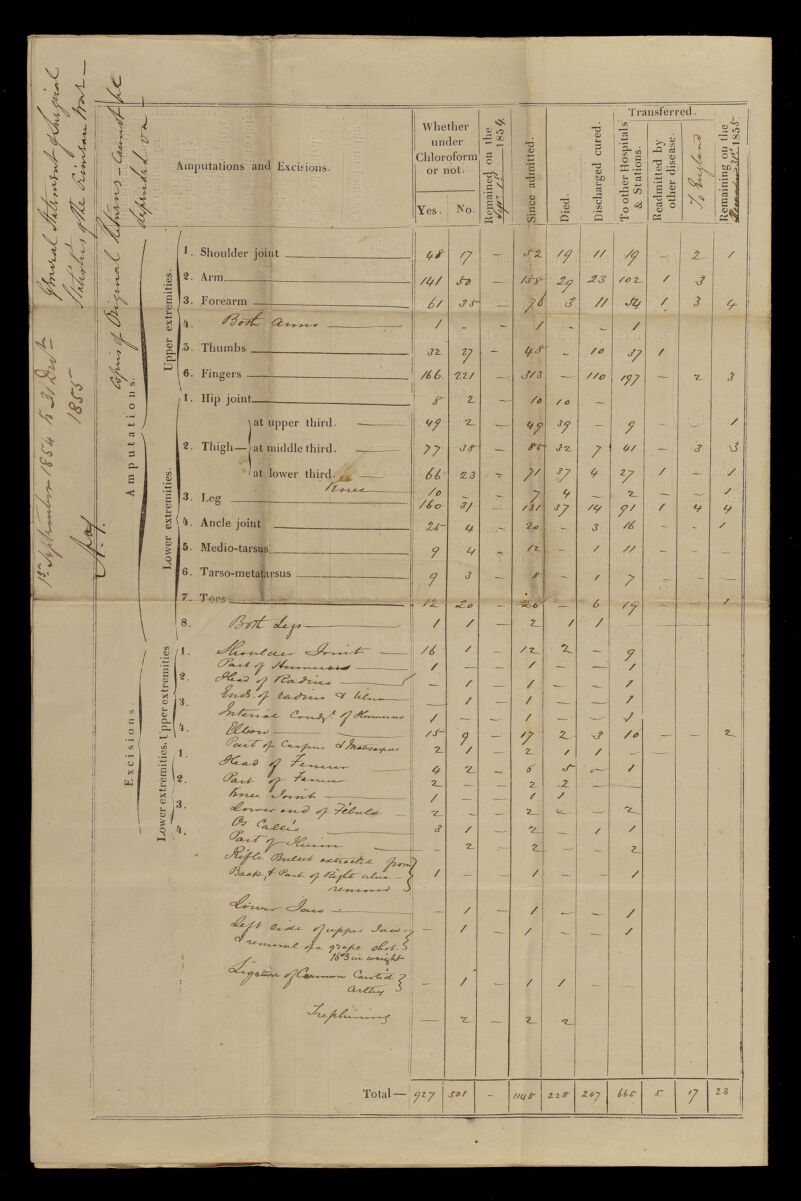 General Statement of Surgical
Statistics of the Crimean War —
1st September 1854 to 31 Decr
1855 —
Copies of Original Returns — Cannot be
depended on —
Amputations and Excisions.
Whether under Chloroform or not.
Yes. No.
Remained on the Sept. 1st 1854.
Since admitted.
Died.
Discharged cured.
Transferred.
To other Hospitals & Stations.
Readmitted by other disease.
To England
Remaining on the December 31st 1855.
Amputations.
Upper extremities.
1. Shoulder joint 48 17 — 52 19 11 19 — 2 1
2. Arm 141 50 — 158 29 23 102 1 3
3. Forearm 61 35 — 76 3 11 54 1 3 4
4. Both Arms 1 - — 1 — — 1
5. Thumbs 32 27 — 48 — 10 37 1
6. Fingers 166 221 — 313 — 110 197 — 2 3
Lower extremities.
1. Hip joint 8 2 — 10 10 —
2. Thigh— at upper third. 49 2 — 49 39 — 9 — — 1
at middle third. 77 38 — 85 32 7 41 — 3 3
at lower third. 66 23 — 71 37 4 27 1 — 1
Knee 10 — — 7 4 — 2 — — 1
3. Leg 160 31 — 131 37 14 91 1 4 4
4. Ancle joint 25 4 — 20 — 3 16 — — 1
5. Medio-tarsus 9 4 — 12 — 1 11 — — —
6. Tarso-metatarsus 9 3 — 8 — 1 7 — — —
7. Toes 12 20 — 26 — 6 19 — 1
8. Both Legs — 1 1 — 2 1 1
Excisions.
Upper extremities
1. Shoulder Joint — 16 1 — 12 2 — 9
Part of Humerus 1 — — 1 — — 1
2. Head of Radius — 1 — 1 — — 1
3. Ends of radius & Ulna — 1 — 1 — — 1
Internal Condyl of Humerus 1 — — 1 — — 1
4. Elbow 15 9 — 17 2 3 10 — — 2
Part of Carpus & Metacarpus 2 1 — 2 1 1 — —
Lower extremities.
1. Head of Femur 4 2 — 6 5 — 1
2. Part of Femur 2 — — 2 2 —
Knee Joint 1 — — 1 1
3. Lower end of Fibula — 2 — — 2 — — 2
4. Os Calcis 3 1 — 2 — 1 1
Part of Ilium — 2 — 2 — — 2
Rifle Bullet extracted from
Back, & Part of Right ulna — 1 — — 1 — — 1
removed
Lower Jaw — — 1 — 1 — — 1
Left side of upper Jaw — 1 — 1 — — 1
& removal of a grape shot
in weight
Ligature of Common Carotid — 1 — 1 1 — —
Artery
Trephining — 2 — 2 2
Total— 927 501 - 1145 228 207 665 5 17 23